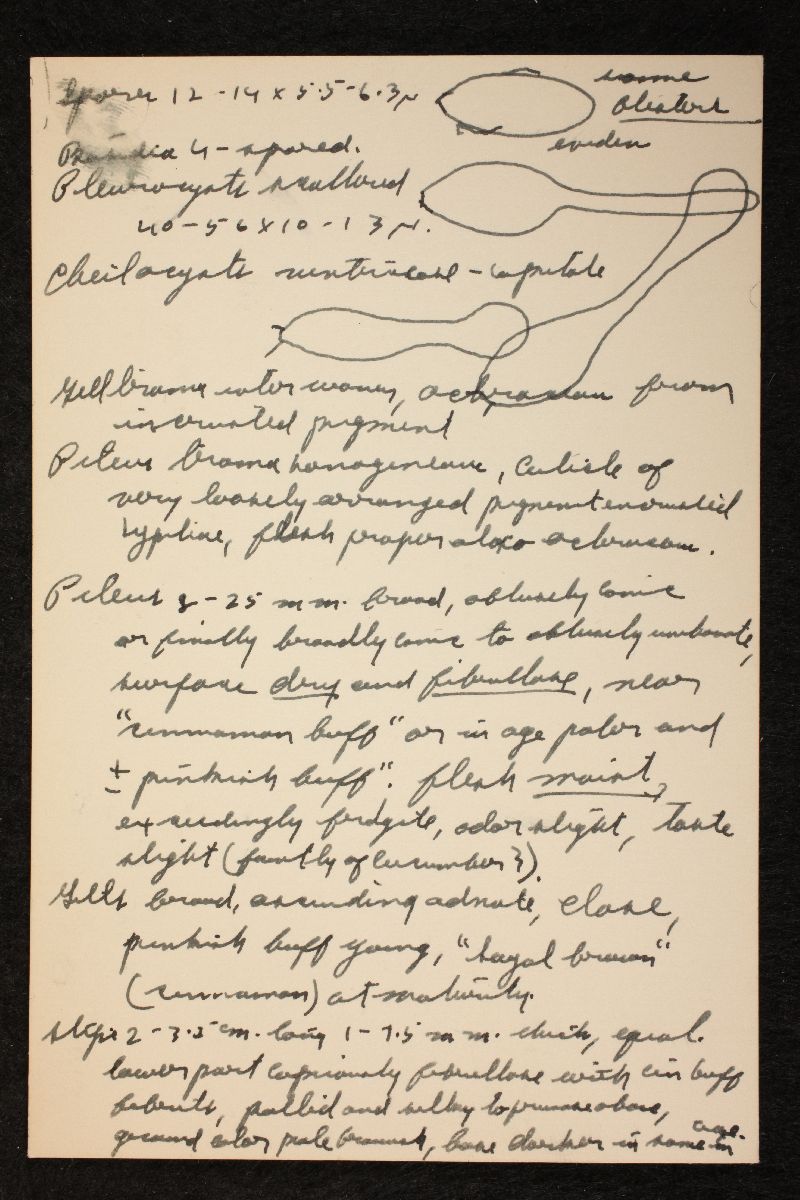 Spores 12-14 x 5.5-6.3 μ some
blisters
evident
Basidia 4-spored.
Pleurocysts scattered
40-56 x 10-13 μ.
Cheilocysts ventricose-capitate
Gill trama interwoven, ochraceous from
incrusted pigment
Pileus trama homogeneous, cuticle of
very loosely arranged pigment encrusted
hyphae, flesh proper also ochraceous.
Pileus 8-25 mm. broad, obtusely conic
or finally broadly conic to obtusely umbonate,
surface dry and fibrillose, near
"cinnamon buff" or in age paler and
± pinkish buff". flesh moist,
exceedingly fragile, odor slight, taste
slight (faintly of cucumber?).
Gills broad, ascending adnate, close,
pinkish buff young, "sayal brown"
(cinnamon) at maturity.
Stipe 2-3.5 cm. long 1-1.5 mm. thick, equal.
lower part copiously fibrillose with cin buff
fibrils, pallid and silky to pruinose above,
ground color pale brownish, base darker in some in
age.